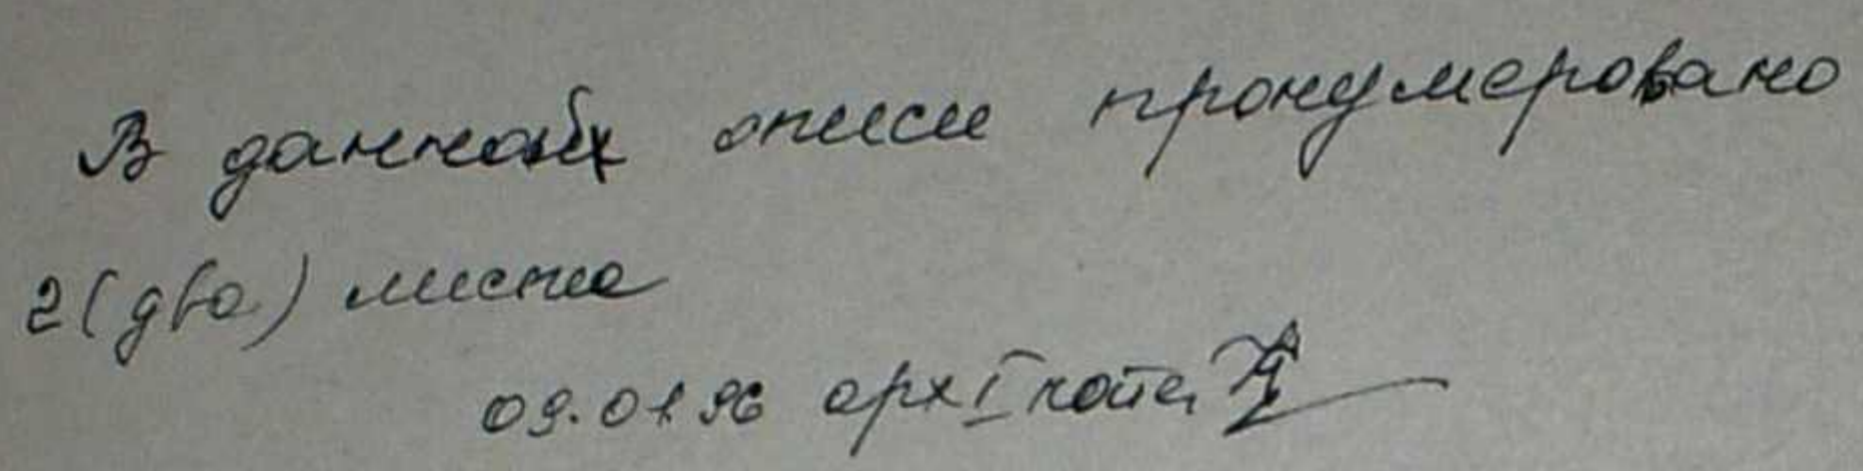 В данной описи пронумеровано
2 (два) листа
09.01.96 арх I кате